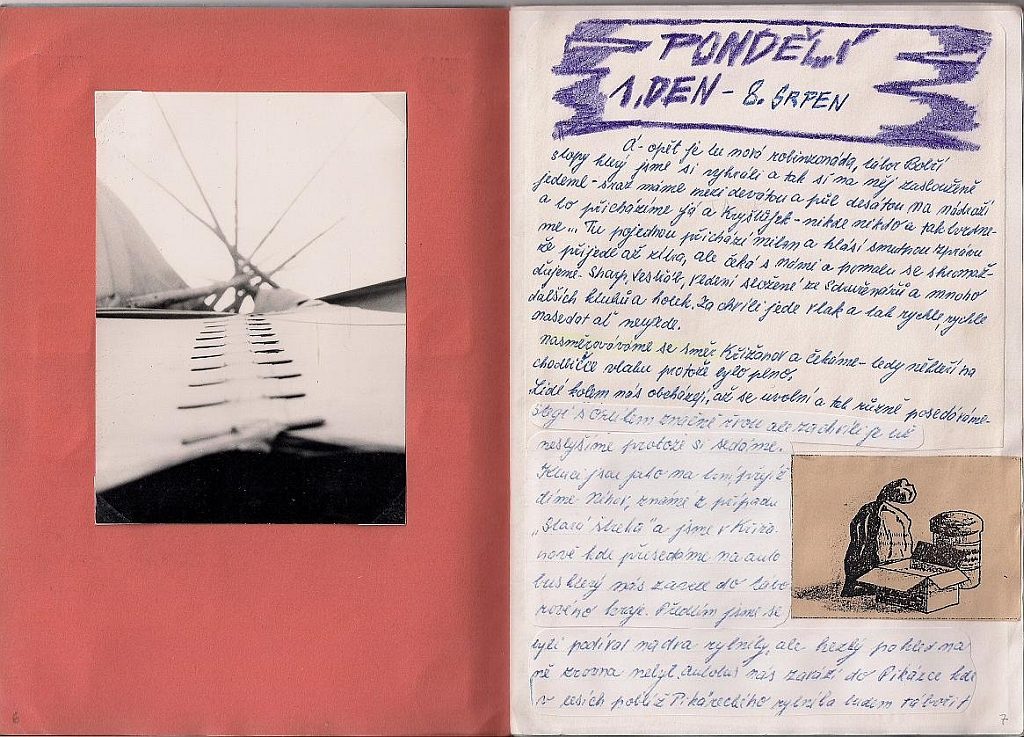 PONDĚLÍ
1. DEN - 8. SRPEN
A - opět je tu nová robinzonáda, tábor Boží
stopy který jsme si vybrali a tak si na něj zaslouženě
jedeme - sraz máme mezi devátou a půl desátou na nádraží
a to přicházíme já a Kryštůfek - nikde nikdo a tak
me... Tu pojednou přichází milan a hlásí smutnou zprávu
že přijede až zítra, ale čeká s námi a pomalu se shromaž
ďujeme - Sharp, Vestičk, vedení složené ze a mnoho
dalších kluků a holek. Za chvíli jede vlak a tak rychle, rychle
nasedat ať neujede.
nasměrováváme se směr Křižanov a čekáme - tedy někteří na
chodbičce vlaku protože bylo plno.
Lidé kolem nás obcházejí, až se uvolní a tak různě posedáváme
s značně řvou ale za chvíli je už
neslyšíme protože si sedáme.
Kluci jsou jako na trní přijíž
díme známé z případu
"Staří " a jsme v Křiža
nově kde přesedáme na auto
bus který nás zaveze do tábo
rového kraje. Předtím jsme se
byli podívat na dva rybníky, ale hezký pohled na
ně zrovna nebyl. Autobus nás zaváží do Pikárce kde
v lesích poblíž Pikáreckého rybníka budem tábořit
6
7